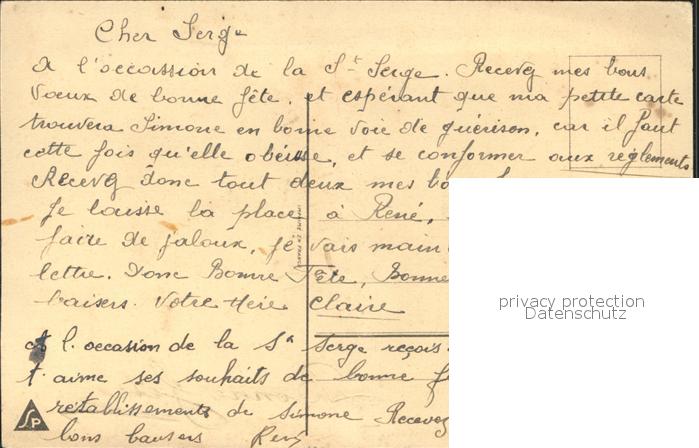 Cher Serge
A l'occassion de la St Serge. Recevez mes bons
Voeux de bonne fête, et espérant que ma petite carte
trouvera Simone en bonne Voie de guérison, car il faut
cette fois qu'elle obéisse, et se conformer aux règlements
Recevez donc tout deux mes
Je laisse la place à René,
faire de jaloux, je vais
lettre. Donc Bonne Fête, Bonne
baisers. Votre Mère Claire
A l'occasion de la St Serge reçois
t'aime ses souhaits de bonne
rétablissements de Simone Recevez
bons baisers René
IMPRIMÉ EN FRANCE
SP
privacy protection
Datenschutz